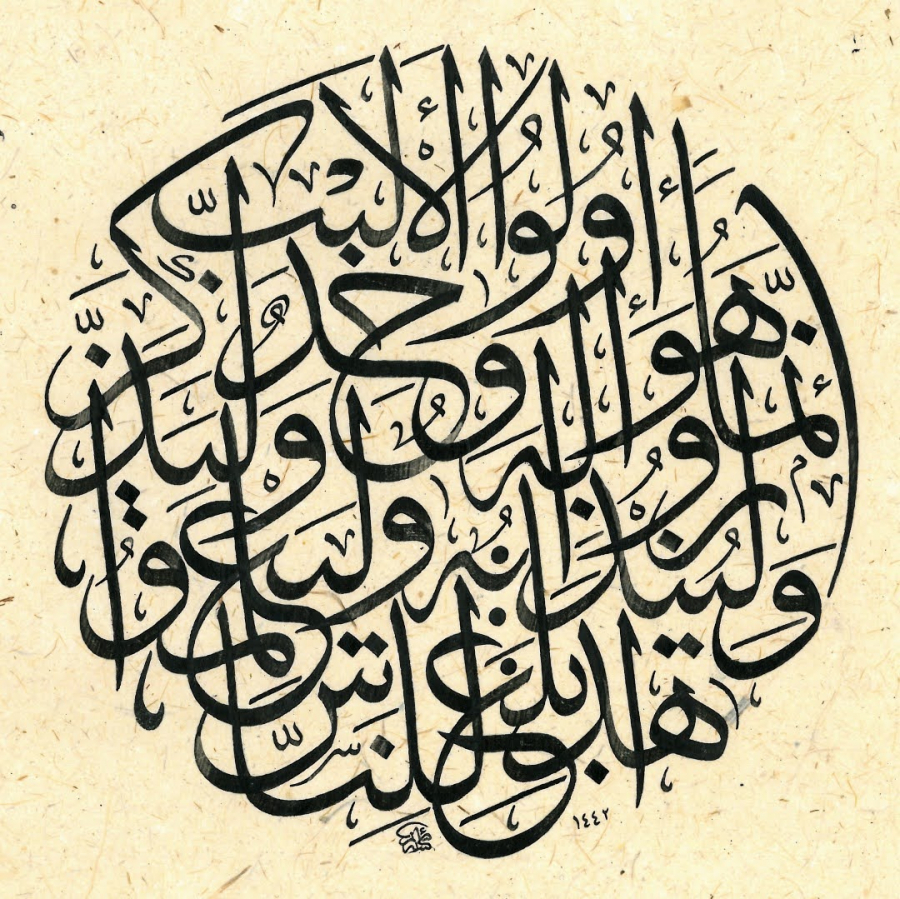 هَٰذَا بَلَٰغٌ لِّلنَّاسِ
وَلِيُنذَرُوا۟ بِهِۦ وَلِيَعْلَمُوٓا۟
أَنَّمَا هُوَ إِلَٰهٌ وَٰحِدٌ وَلِيَذَّكَّرَ
أُو۟لُوا۟ ٱلْأَلْبَٰبِ
١٤٤٢